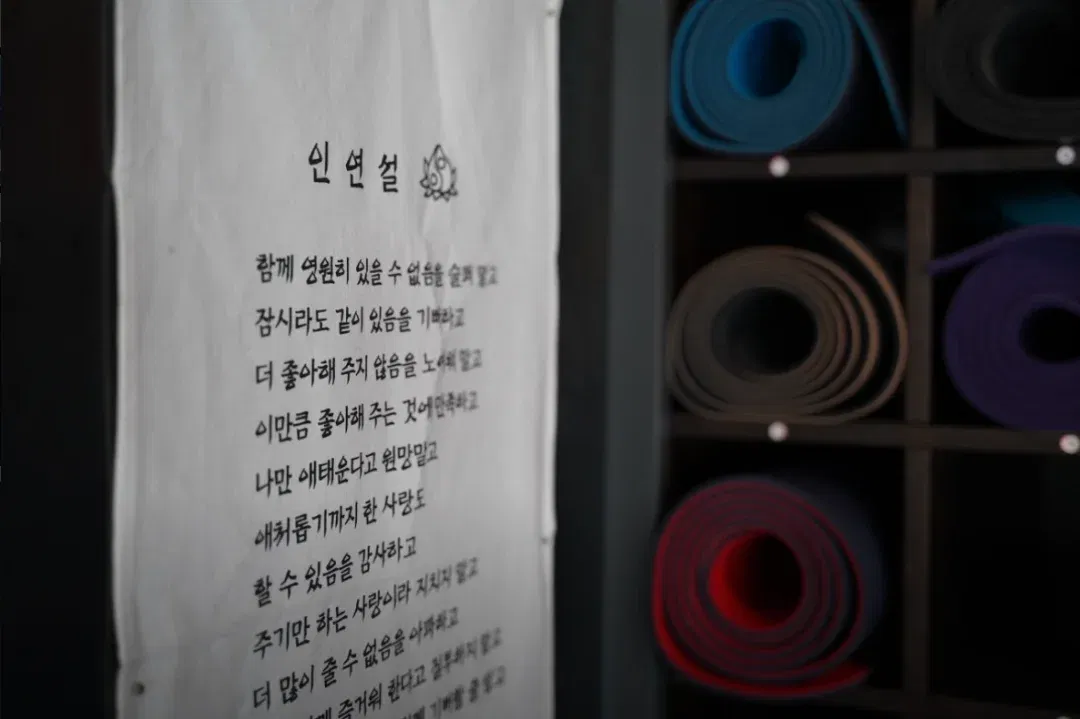 인연설
함께 영원히 있을 수 없음을 슬퍼 말고
잠시라도 같이 있음을 기뻐하고
더 좋아해 주지 않음을 노여워 말고
이만큼 좋아해 주는 것에 만족하고
나만 애태운다고 원망말고
애처롭기까지 한 사랑도
할 수 있음을 감사하고
주기만 하는 사랑이라 지치지 말고
더 많이 줄 수 없음을 아파하고
즐거워 한다고 질투하지 말고
기뻐할 줄 알고